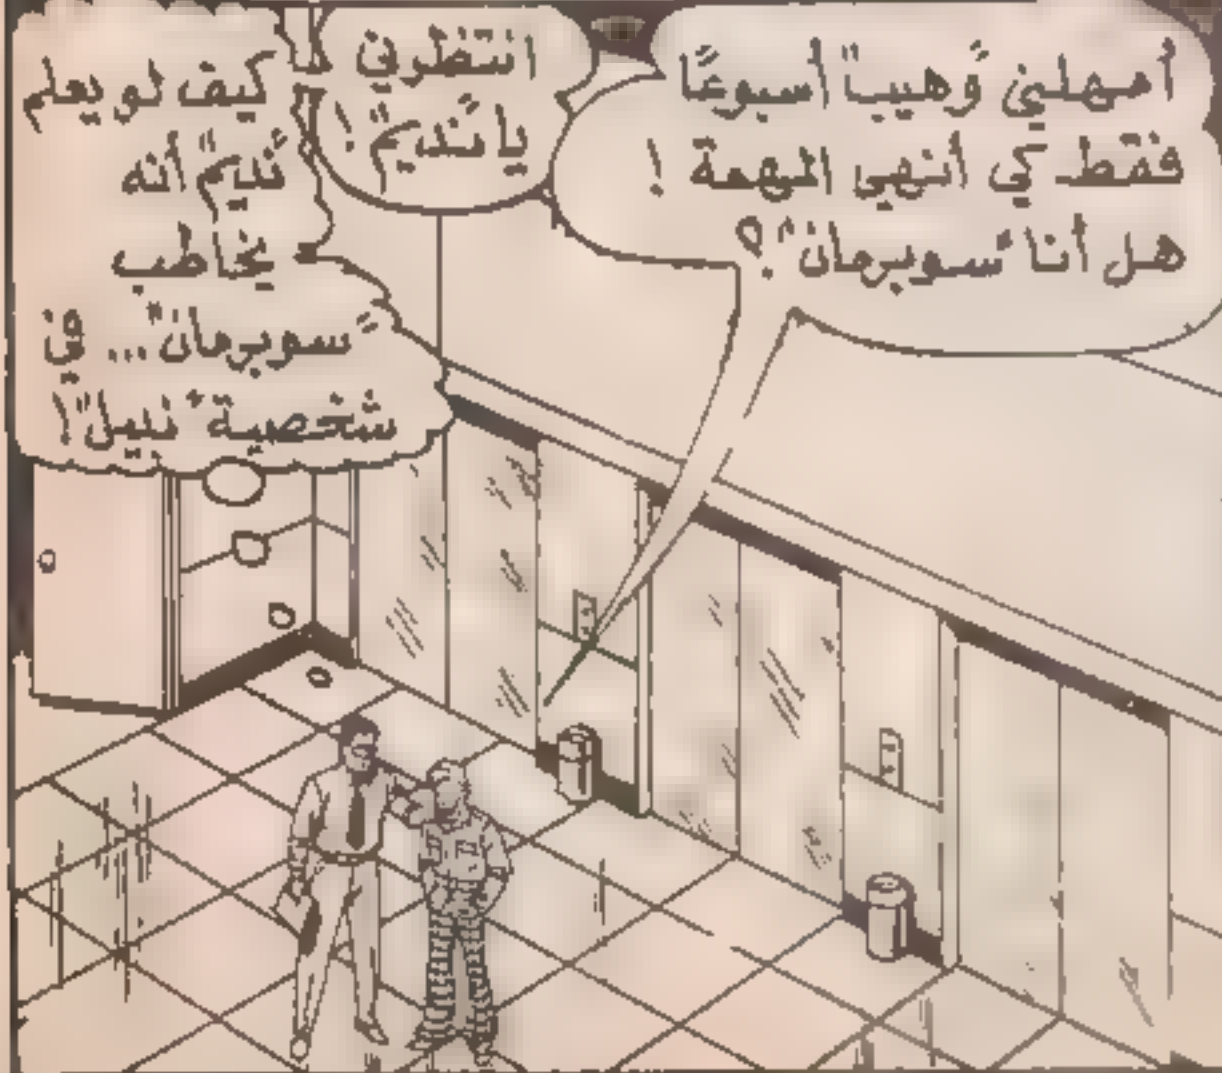 أمهلني "وهيب" أسبوعًا
فقط كي أنهي المهمة !
هل أنا "سوبرمان"؟
انتظرني
يا "نديم" !
كيف لو يعلم
"نديم" أنه
يخاطب
"سوبرمان"... في
شخصية "نبيل"!